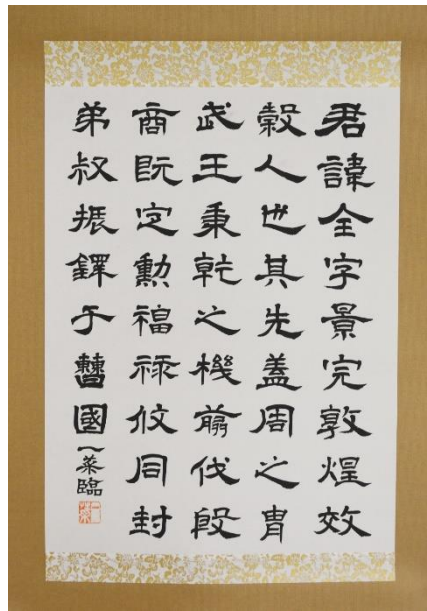 君諱全字景完敦煌效
穀人也其先蓋周之胄
武王秉乾之機翦伐殷
商既定勳福祿攸同封
弟叔振鐸于曹國 一葉臨